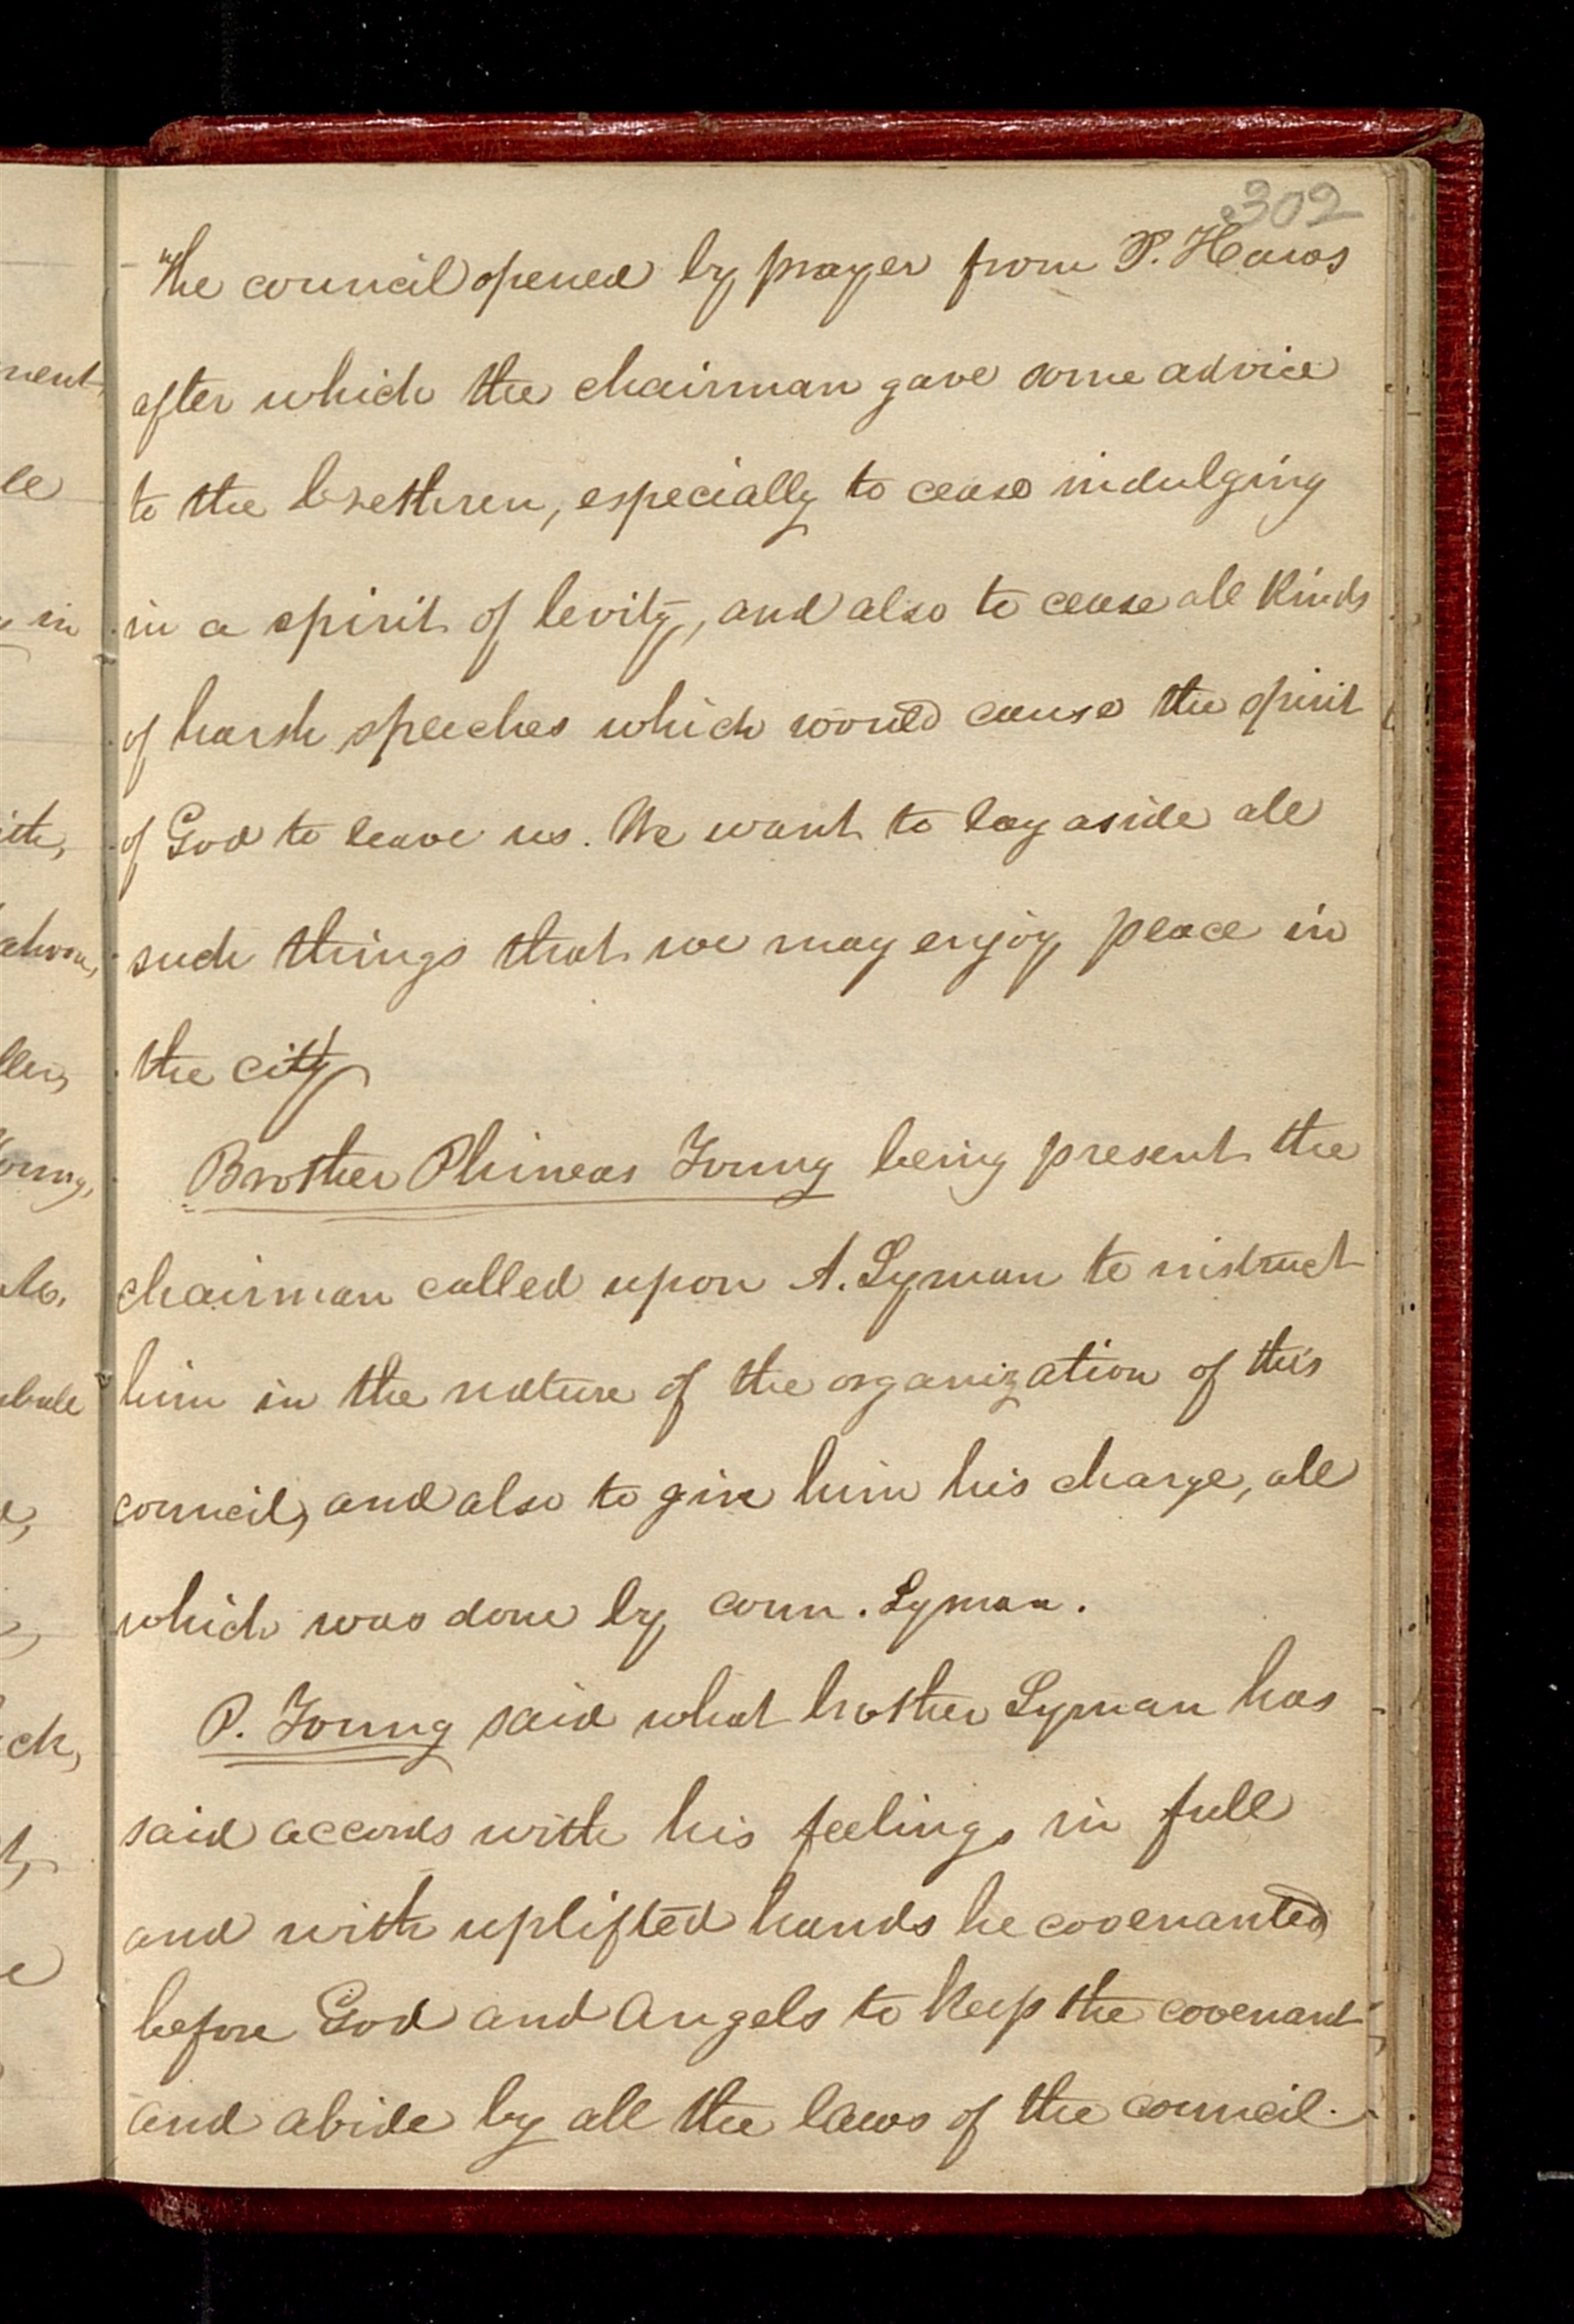 302
The council opened by prayer from P. Haws
after which the chairman gave some advice
to the brethren, especially to cease indulging
in a spirit of levity, and also to cease all kinds
of harsh speeches which would cause the spirit
of God to leave us. We want to lay aside all
such things that we may enjoy peace in
the city
Brother Phineas Young being present the
chairman called upon A. Lyman to instruct
him in the nature of the organization of this
council, and also to give him his charge, all
which was done by coun. Lyman.
P. Young said what brother Lyman has
said accords with his feelings in full
and with uplifted hands he covenanted
before God and Angels to keep the covenant
and abide by all the laws of the council.